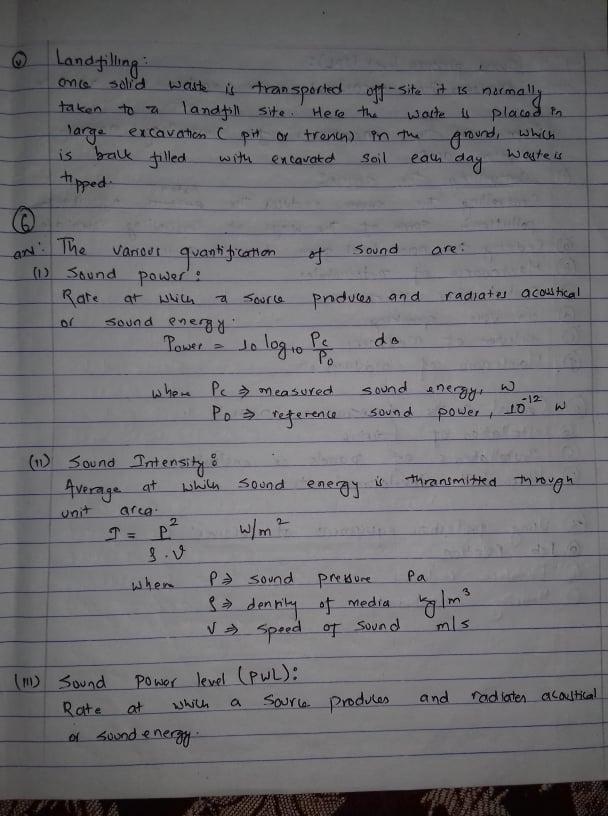 (v) Landfilling:
once solid waste is transported off-site it is normally
taken to a landfill site. Here the waste is placed in
large excavation ( pit or trench) in the ground, which
is back filled with excavated soil each day waste is
tipped.
(6)
ans: The various quantification of sound are:
(i) Sound power:
Rate at which a source produces and radiates acoustical
or sound energy.
Power = 10 log₁₀ Pc/P₀ dB
where Pc ⇒ measured sound energy, W
P₀ ⇒ reference sound power, 10⁻¹² W
(ii) Sound Intensity:
Average at which sound energy is thransmitted through
unit area.
I = P²/ρ.v W/m²
where P ⇒ sound pressure Pa
ρ ⇒ density of media kg/m³
V ⇒ speed of sound m/s
(iii) Sound power level (PWL):
Rate at which a source produces and radiates acoustical
or sound energy.